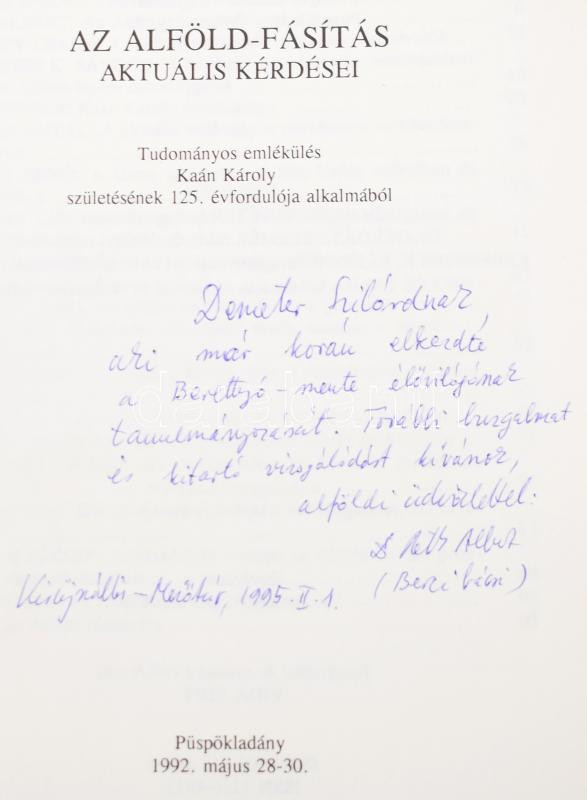 AZ ALFÖLD-FÁSÍTÁS
AKTUÁLIS KÉRDÉSEI
Tudományos emlékülés
Kaán Károly
születésének 125. évfordulója alkalmából
Demeter Szilárdnak,
aki már korán elkezdte
a Berettyó-mente élővilágának
tanulmányozását. További buzgalmat
és kitartó vizsgálódást kívánok,
alföldi üdvözlettel:
Dr Tóth Albert
(Berci bácsi)
Kisújszállás - Mezőtúr, 1995. II. 1.
Püspökladány
1992. május 28-30.